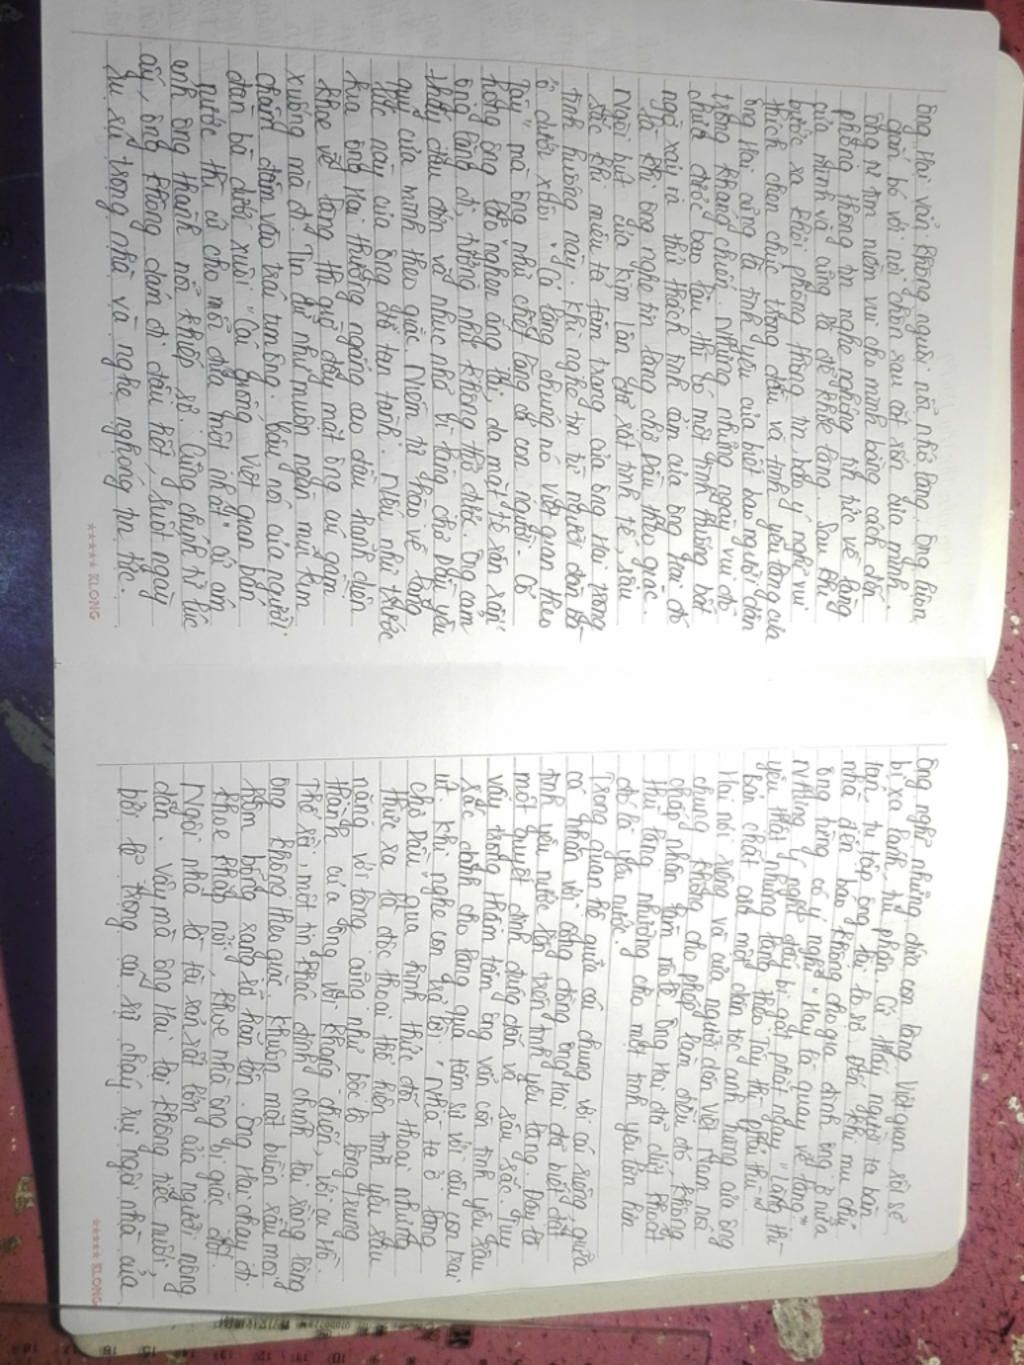 ông Hai vẫn không nguôi nỗi nhớ làng. Ông luôn
gắn bó với nơi chôn rau cắt rốn của mình.
ông đi tìm niềm vui cho mình bằng cách đến
phòng thông tin nghe những tin tức về làng
của mình và cũng là để khoe làng. Sau khi
bước ra khỏi phòng thông tin bao ý nghĩ vui
thích chen chúc trong đầu và tình yêu làng của
ông Hai cũng là tình yêu của biết bao người dân
trong kháng chiến. Nhưng những ngày vui đó
chưa được bao lâu thì có một tình huống bất
ngờ xảy ra thử thách tình cảm của ông Hai đó
là khi ông nghe tin làng chợ Dầu theo giặc.
Ngòi bút của Kim Lân thật sắt tinh tế, sâu
sắc khi miêu tả tâm trạng của ông Hai trong
tình huống này. Khi nghe tin từ người đàn bà
ở dưới xuôi "Cả làng chúng nó Việt gian theo
Tây" mà ông như chết lặng đi con người. Cổ
họng ông lão nghẹn ắng lại, da mặt tê rân rân
ông lặng đi, tưởng như không thở được. Ông cảm
thấy đau đớn và nhục nhã vì làng chợ Dầu yêu
quý của mình theo giặc. Niềm tự hào về làng
lúc này của ông đổ tan tành. Nếu như trước
kia ông Hai thường ngẩng cao đầu hãnh diện
khoe về làng thì giờ đây một ông cúi gằm
xuống mà đi. Tin dữ như muôn ngàn mũi kim
châm đâm vào trái tim ông. Câu nói của người
đàn bà dưới xuôi "Cái giống Việt gian bán
nước thì cứ cho mỗi đứa một nhát" cứ ám
ảnh ông thành nỗi khiếp sợ. Cũng chính từ lúc
ấy, ông không dám đi đâu hết, suốt ngày
ru rú trong nhà và nghe nghóng tin tức.
★★★★★ KLONG
Ông nghĩ những đứa con làng Việt gian rồi sẽ
bị xa lánh, hủi phận. Cứ thấy người ta bàn
tán, tụ tập ông lại lo sợ. Đến khi mụ chủ
nhà đến báo không cho gia đình ông ở nữa
ông từng có ý nghĩ "Hay là quay về làng"
Nhưng ý nghĩ đấy bị gạt phắt ngay "Làng thì
yêu thật nhưng làng theo Tây thì phải thù"
Bản chất của một dân tộc anh hùng của ông
Hai nói riêng và của người dân Việt Nam nói
chung không cho phép làm điều đó, không
chấp nhận làm nô lệ. Ông Hai đã dứt khoát
thù làng nhường cho một tình yêu lớn hơn
đó là yêu nước.
Trong quan hệ giữa cái chung và cái riêng giữa
cá nhân với cộng đồng ông Hai đã biết đặt
tình yêu nước lên trên tình yêu làng. Đây là
một quyết định đúng đắn và sâu sắc. Tuy
vậy trong thâm tâm ông vẫn còn tình yêu sâu
sắc dành cho làng qua tâm sự với cậu con trai
út. Khi nghe con trả lời "Nhà ta ở làng
chợ Dầu", qua hình thức đối thoại nhưng
thực ra là độc thoại thể hiện tình yêu sâu
nặng với làng cũng như bộc lộ lòng trung
thành của ông với kháng chiến, với cụ Hồ.
Thế rồi, một tin khác đính chính lại rằng làng
ông không theo giặc. Khuôn mặt buồn rầu mọi
hôm bỗng rạng rỡ hẳn lên. Ông Hai chạy đi
khoe khắp nơi, khoe nhà ông bị giặc đốt.
Ngôi nhà là tài sản rất lớn của người nông
dân. Vậy mà ông Hai lại không tiếc nuối,
bởi lẽ trong cái sự cháy rụi ngôi nhà của
★★★★★ KLONG